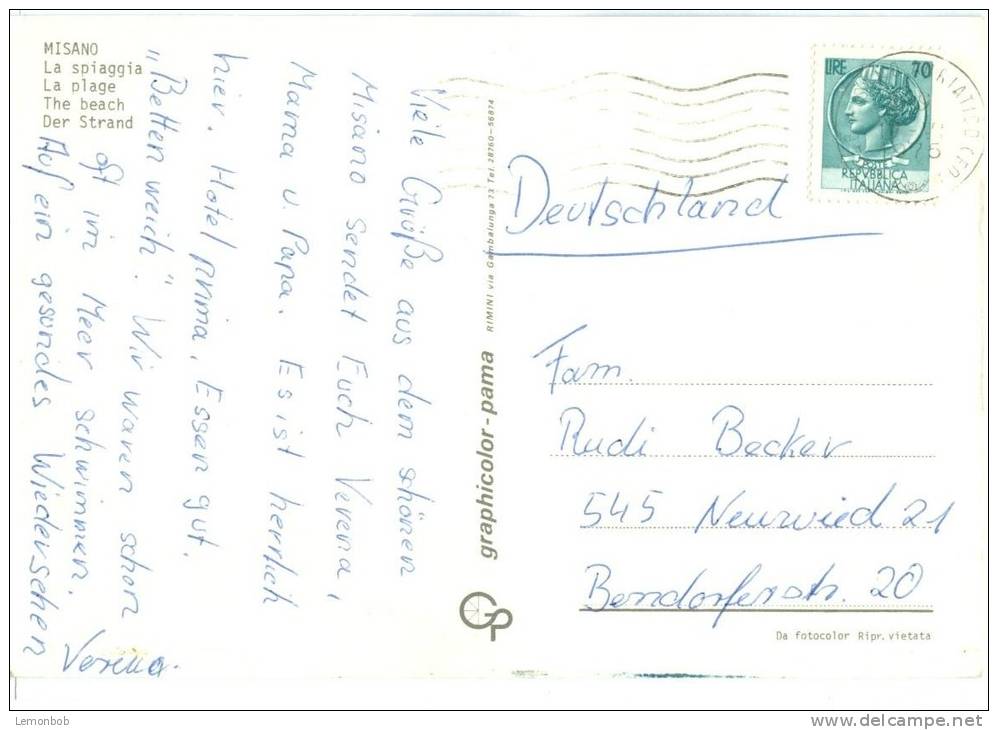 MISANO
La spiaggia
La plage
The beach
Der Strand
Viele Grüße aus dem schönen
Misano sendet Euch Verena,
Mama u. Papa. Es ist herrlich
hier. Hotel prima, Essen gut.
„Betten weich". Wir waren schon
oft im Meer schwimmen.
Auf ein gesundes Wiedersehen
Verena.
graphicolor-pama RIMINI via Gambalunga 73 Tel. 28760-56874
GP
LIRE 70
POSTE
REPVBBLICA
ITALIANA
75
Deutschland
Fam.
Rudi Becker
545 Neuwied 21
Bendorferstr. 20
Da fotocolor Ripr. vietata
Lemonbob
delcampe.net